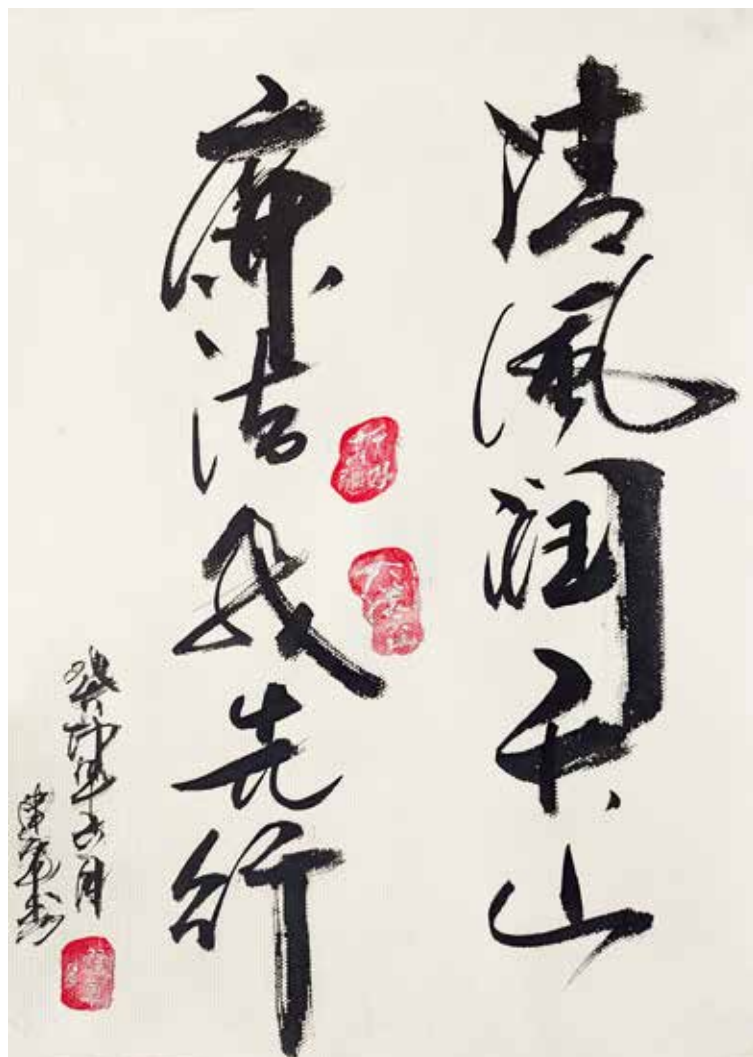 清风润千山
廉洁我先行
癸卯年六月